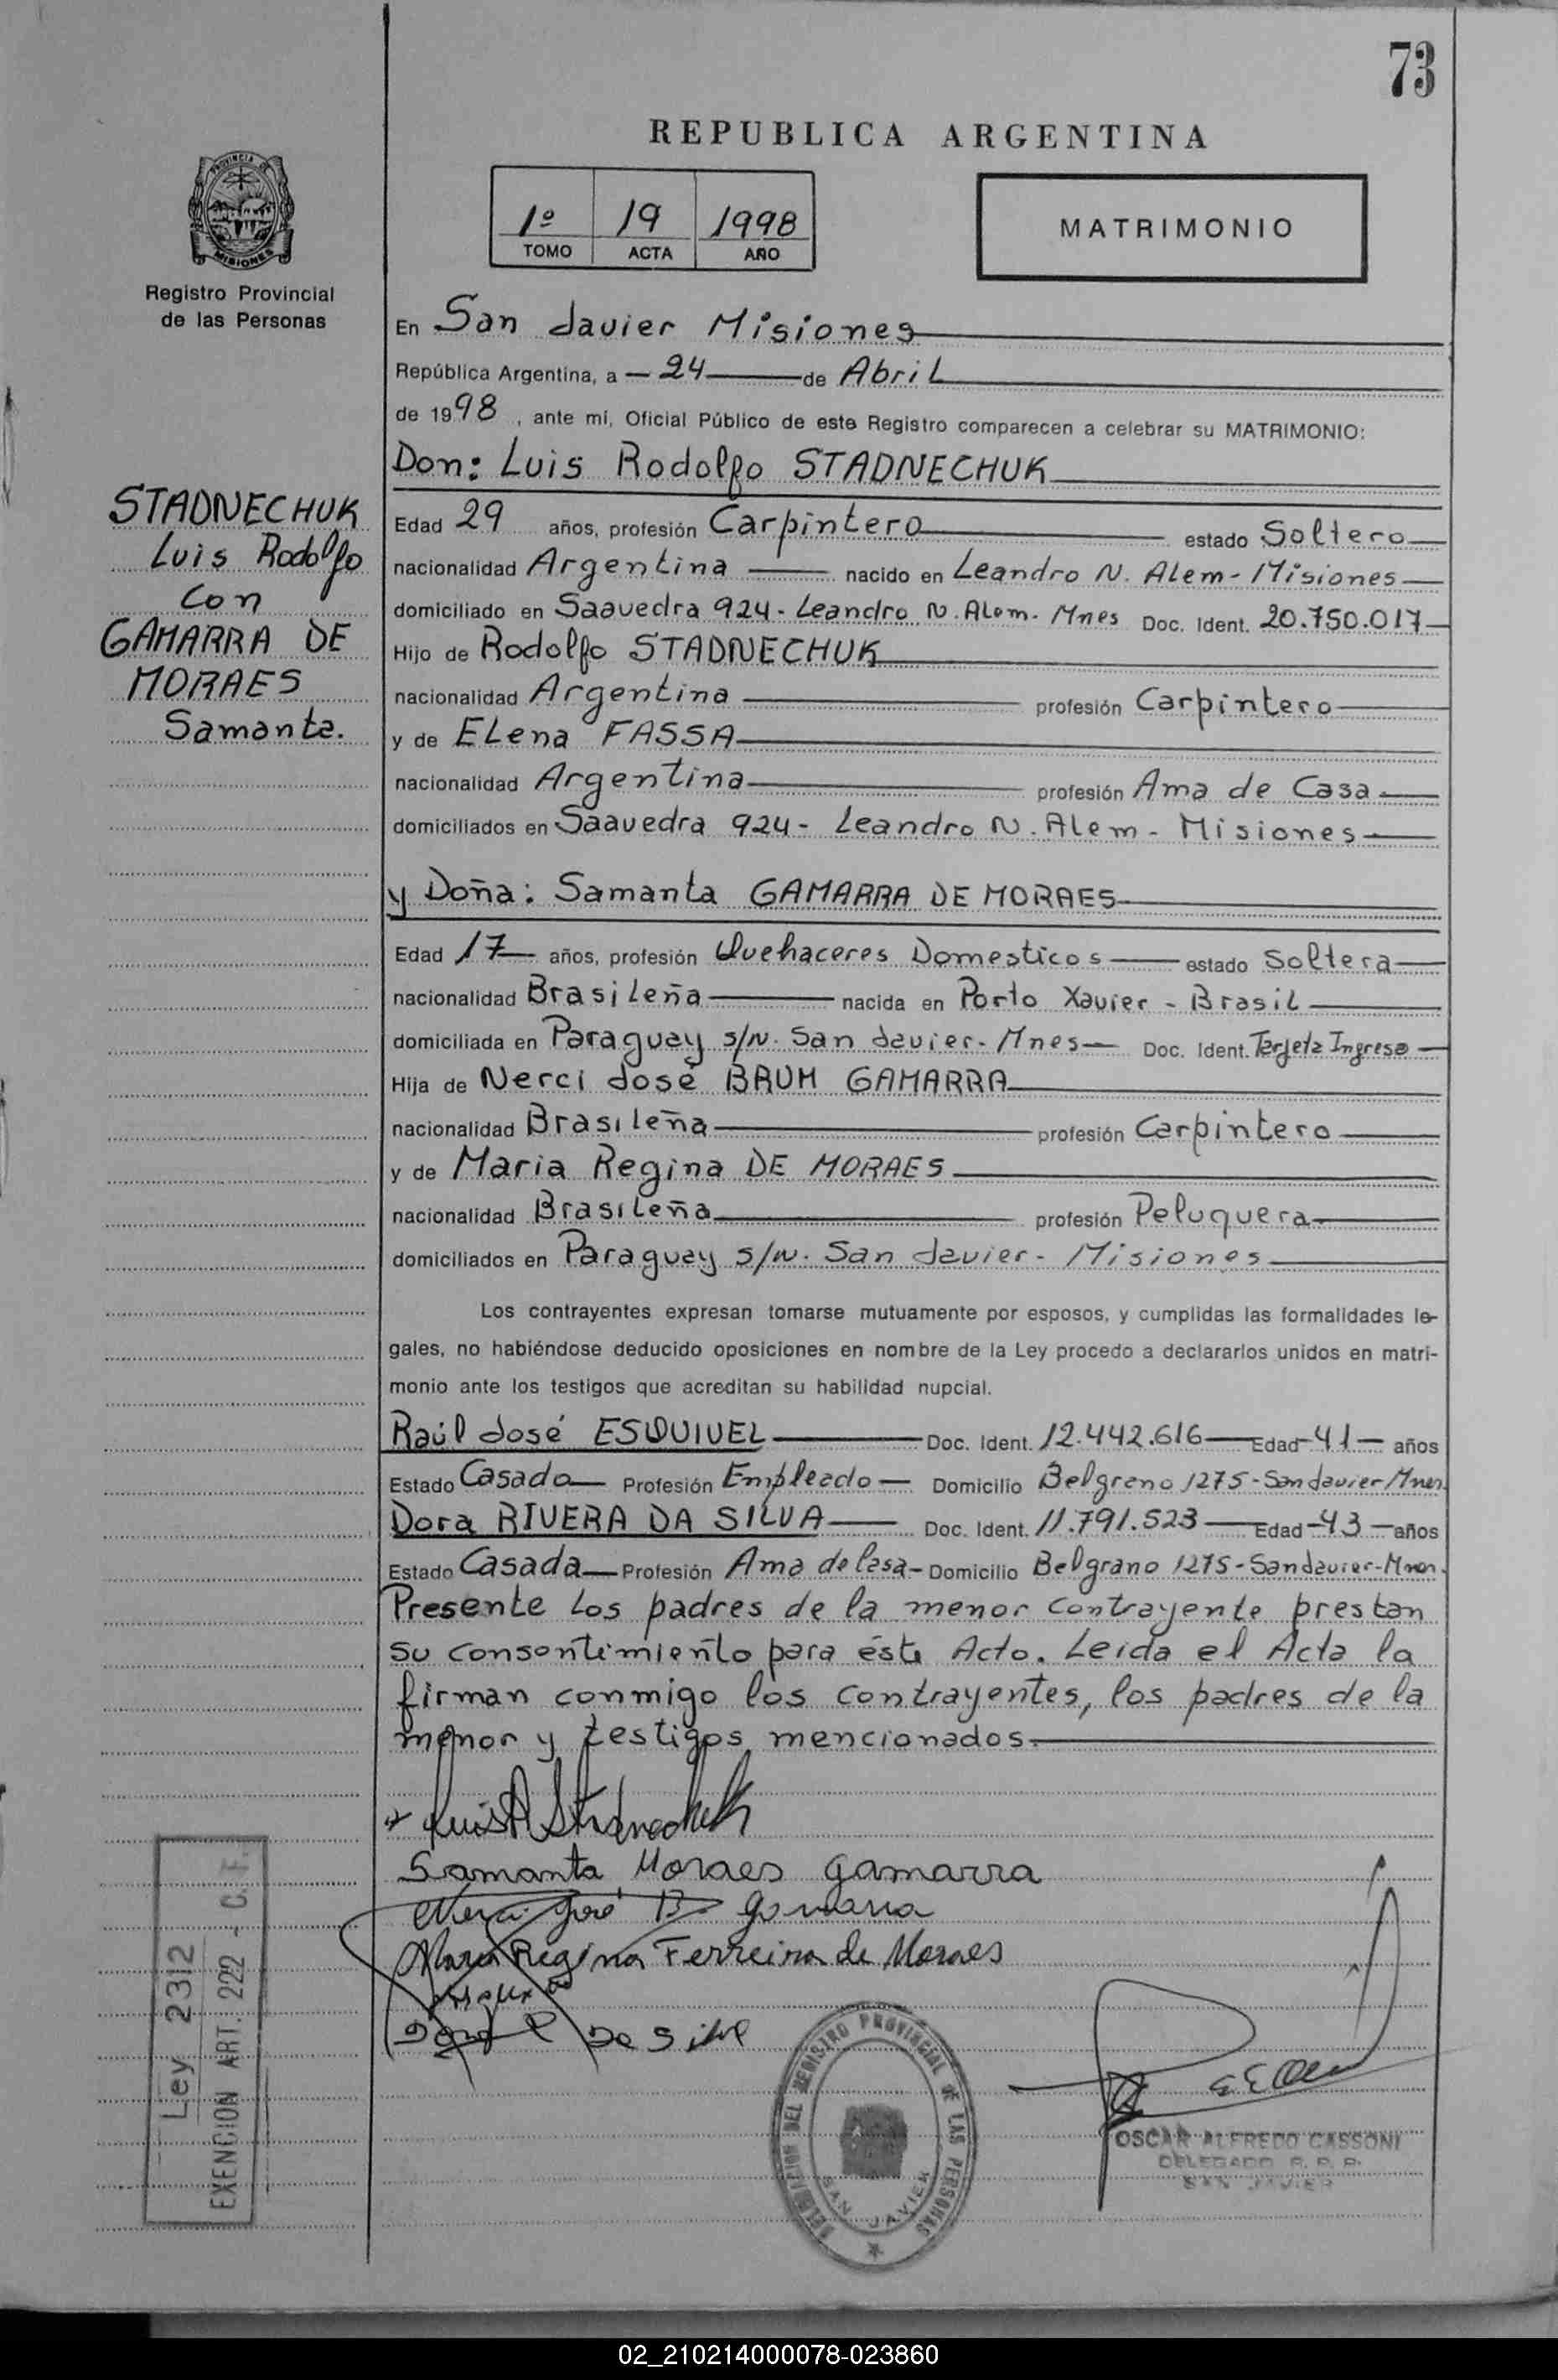 73
REPUBLICA ARGENTINA
PROVINCIA DE
MISIONES
Registro Provincial
de las Personas
1º 19 1998
TOMO ACTA AÑO
MATRIMONIO
En San Javier Misiones
República Argentina, a 24 de Abril
de 1998, ante mí, Oficial Público de este Registro comparecen a celebrar su MATRIMONIO:
Don: Luis Rodolfo STADNECHUK
STADNECHUK
Luis Rodolfo
Con
GAMARRA DE
MORAES
Samanta.
Edad 29 años, profesión Carpintero estado Soltero
nacionalidad Argentina nacido en Leandro N. Alem - Misiones
domiciliado en Saavedra 924 - Leandro N. Alem - Mnes Doc. Ident. 20.750.017
Hijo de Rodolfo STADNECHUK
nacionalidad Argentina profesión Carpintero
y de Elena FASSA
nacionalidad Argentina profesión Ama de Casa
domiciliados en Saavedra 924 - Leandro N. Alem - Misiones
y Doña: Samanta GAMARRA DE MORAES
Edad 17 años, profesión Quehaceres Domesticos estado Soltera
nacionalidad Brasileña nacida en Porto Xavier - Brasil
domiciliada en Paraguay s/N. San Javier - Mnes Doc. Ident. Tarjeta Ingreso
Hija de Nerci José BAUM GAMARRA
nacionalidad Brasileña profesión Carpintero
y de Maria Regina DE MORAES
nacionalidad Brasileña profesión Peluquera
domiciliados en Paraguay s/N. San Javier - Misiones
Los contrayentes expresan tomarse mutuamente por esposos, y cumplidas las formalidades le-
gales, no habiéndose deducido oposiciones en nombre de la Ley procedo a declararlos unidos en matri-
monio ante los testigos que acreditan su habilidad nupcial.
Raúl José ESQUIVEL Doc. Ident. 12.442.616 Edad 41 años
Estado Casado Profesión Empleado Domicilio Belgrano 1275 - San Javier/Mnes.
Dora RIVERA DA SILVA Doc. Ident. 11.791.523 Edad 43 años
Estado Casada Profesión Ama de Casa - Domicilio Belgrano 1275 - San Javier - Mnes.
Presente los padres de la menor contrayente prestan
su consentimiento para éste Acto. Leída el Acta la
firman conmigo los contrayentes, los padres de la
menor y testigos mencionados.
Samanta Moraes Gamarra
Nerci José B. Gamarra
Maria Regina Ferreira de Moraes
Da Silva
Ley 2312
EXENCION ART. 222 - C. F.
DELEGACION DEL REGISTRO PROVINCIAL DE LAS PERSONAS
SAN JAVIER
OSCAR ALFREDO CASSONI
DELEGADO R. P. P.
SAN JAVIER
02_210214000078-023860